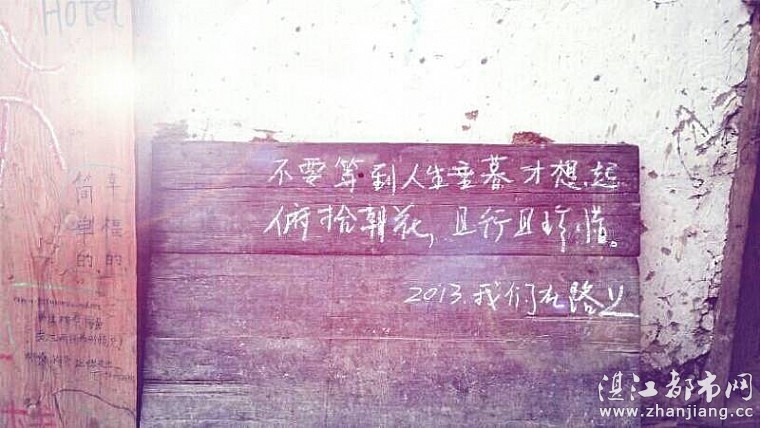 Hotel
幸福的
简单的
不要等到人生垂暮才想起
俯拾朝花，且行且珍惜。
2013.我们在路上
湛江都市网
www.zhanjiang.cc